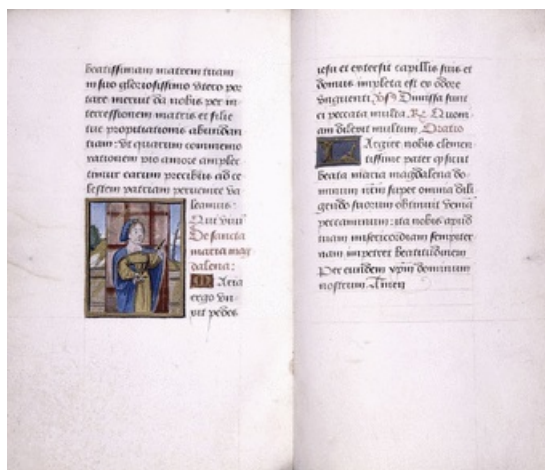 beatissimam matrem tuam
in suo gloriosissimo utero por
tare meruit da nobis per in
tercessionem matris et filie
tue propitiationis abundan
tiam: Ut quarum commemo
rationem pio amore amplec
timur earum precibus ad ce
lestem patriam pervenire va
leamus:
Qui vivis
De sancta
maria mag
dalena:
Maria
ergo un
xit pedes
iesu et extersit capillis suis et
domus impleta est ex odore
unguenti. Vs Dimissa sunt
ei peccata multa. R. Quoni
am dilexit multum. Oratio
Largire nobis clemen
tissime pater q sicut
beata maria magdalena do
minum nrm super omnia dili
gendo suorum obtinuit venia
peccaminum: ita nobis apud
tuam misericordiam sempiter
nam impetret beatitudinem
Per eundem xpm dominum
nostrum Amen